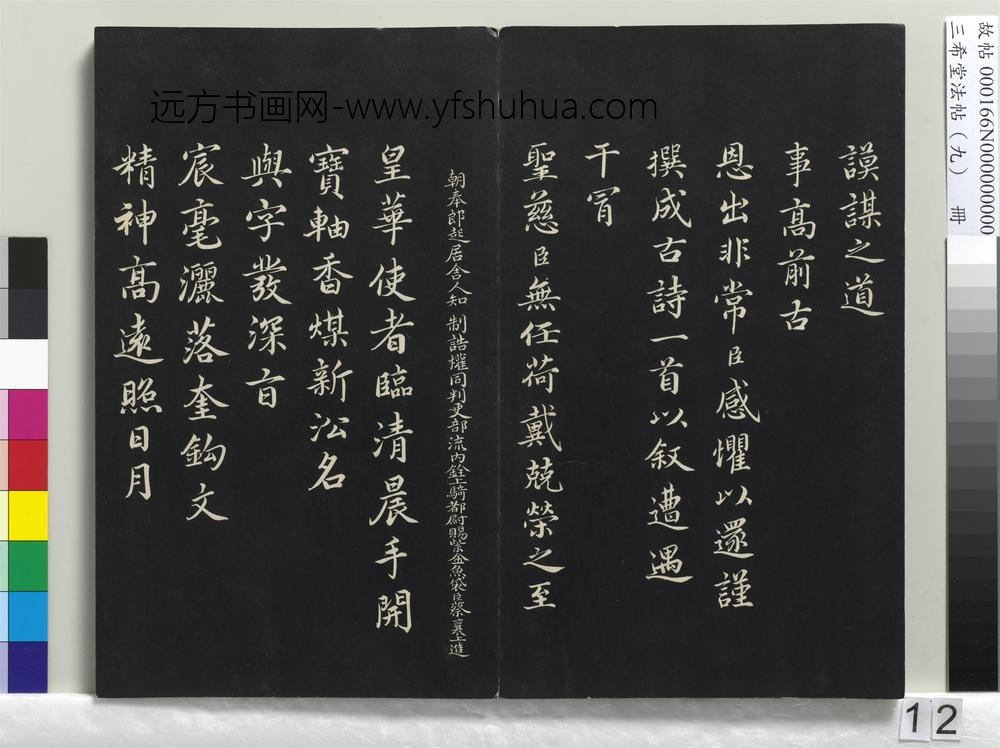 謨謀之道
事高前古
恩出非常臣感懼以還謹
撰成古詩一首以叙遭遇
干冐
聖慈臣無任荷戴兢榮之至
朝奉郎起居舍人知制誥權同判吏部流內銓上騎都尉賜紫金魚袋臣蔡襄上進
皇華使者臨清晨手開
寶軸香煤新沿名
與字發深旨
宸毫灑落奎鈎文
精神高遠照日月
远方书画网-www.yfshuhua.com
故帖 000166N000000000
三希堂法帖(九) 冊
12